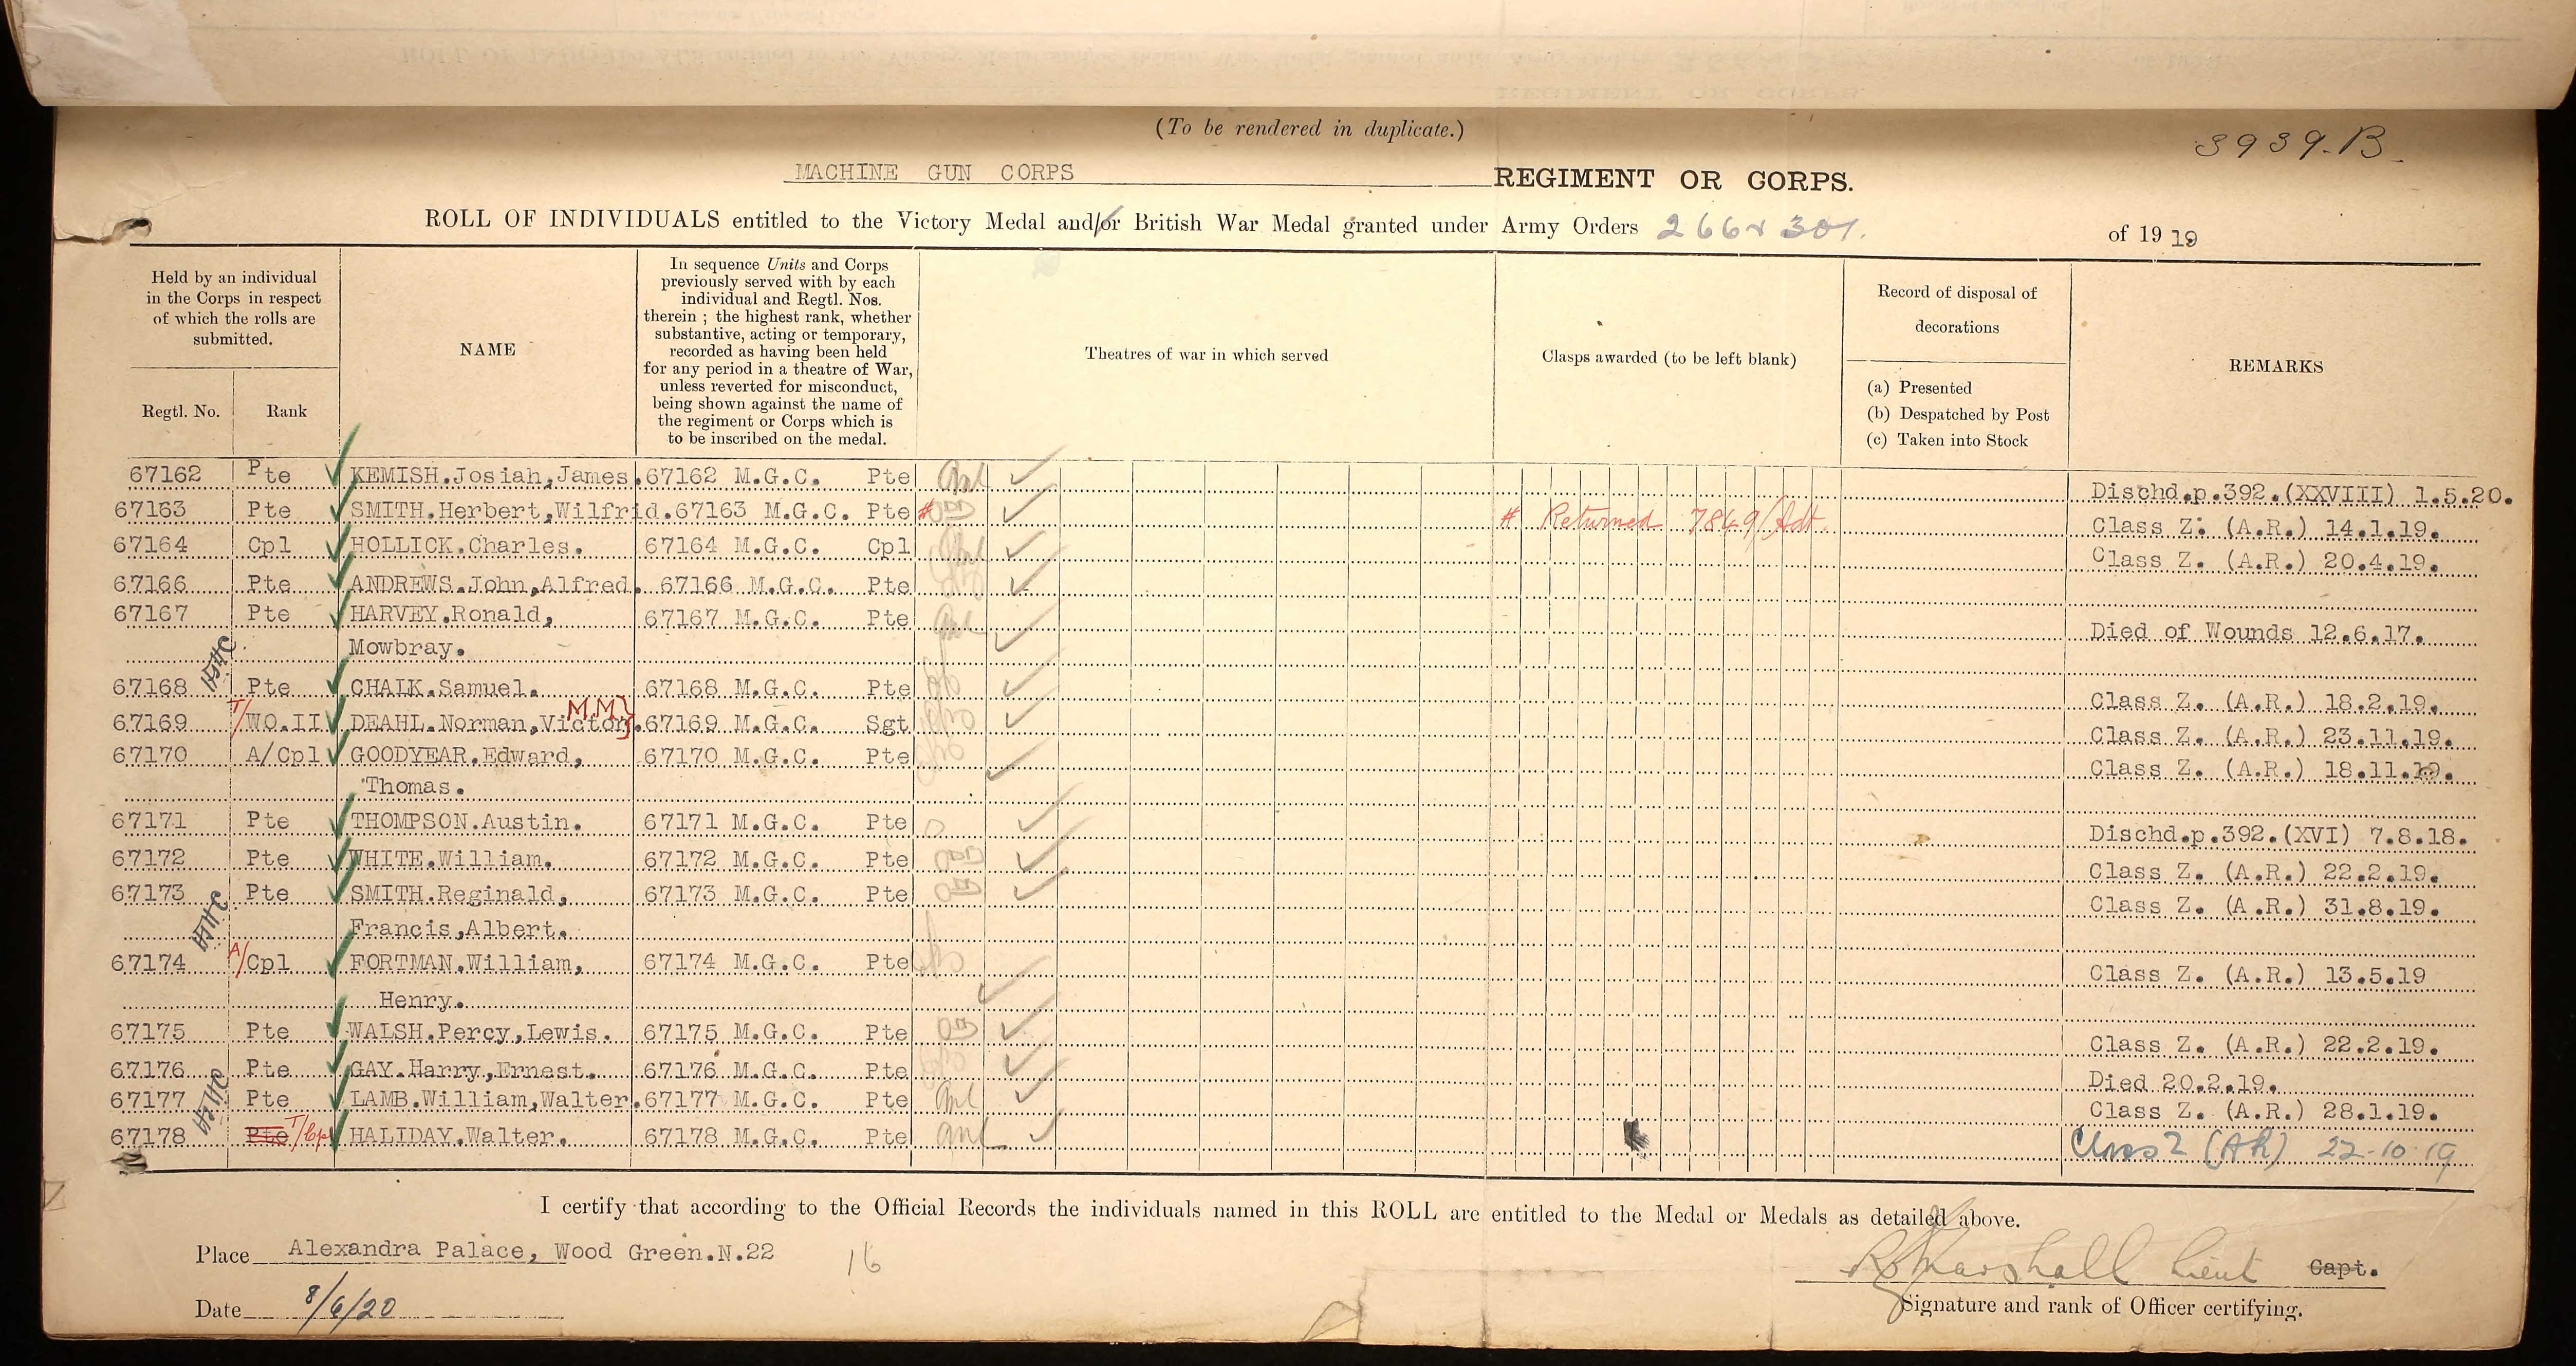 (To be rendered in duplicate.)
3939.B.
MACHINE GUN CORPS REGIMENT OR CORPS.
ROLL OF INDIVIDUALS entitled to the Victory Medal and/or British War Medal granted under Army Orders 266 & 301. of 1919
Held by an individual
in the Corps in respect
of which the rolls are
submitted.
Regtl. No. Rank
NAME
In sequence Units and Corps
previously served with by each
individual and Regtl. Nos.
therein ; the highest rank, whether
substantive, acting or temporary,
recorded as having been held
for any period in a theatre of War,
unless reverted for misconduct,
being shown against the name of
the regiment or Corps which is
to be inscribed on the medal.
Theatres of war in which served
Clasps awarded (to be left blank)
Record of disposal of
decorations
(a) Presented
(b) Despatched by Post
(c) Taken into Stock
REMARKS
67162 Pte KEMISH.Josiah,James.67162 M.G.C. Pte Dischd.p.392.(XXVIII) 1.5.20.
67163 Pte SMITH.Herbert,Wilfrid.67163 M.G.C. Pte # # Returned 7849/Adt. Class Z. (A.R.) 14.1.19.
67164 Cpl HOLLICK.Charles. 67164 M.G.C. Cpl Class Z. (A.R.) 20.4.19.
67166 Pte ANDREWS.John,Alfred. 67166 M.G.C. Pte
67167 Pte HARVEY.Ronald, 67167 M.G.C. Pte Died of Wounds 12.6.17.
Mowbray.
67168 Pte CHALK.Samuel. 67168 M.G.C. Pte Class Z. (A.R.) 18.2.19.
67169 T/W.O.II DEAHL.Norman,Victor. M.M} 67169 M.G.C. Sgt Class Z. (A.R.) 23.11.19.
67170 A/Cpl GOODYEAR.Edward, 67170 M.G.C. Pte Class Z. (A.R.) 18.11.19.
Thomas.
67171 Pte THOMPSON.Austin. 67171 M.G.C. Pte Dischd.p.392.(XVI) 7.8.18.
67172 Pte WHITE.William. 67172 M.G.C. Pte Class Z. (A.R.) 22.2.19.
67173 Pte SMITH.Reginald, 67173 M.G.C. Pte Class Z. (A.R.) 31.8.19.
Francis,Albert.
67174 A/Cpl FORTMAN.William, 67174 M.G.C. Pte Class Z. (A.R.) 13.5.19
Henry.
67175 Pte WALSH.Percy,Lewis. 67175 M.G.C. Pte Class Z. (A.R.) 22.2.19.
67176 Pte GAY.Harry,Ernest. 67176 M.G.C. Pte Died 20.2.19.
67177 Pte LAMB.William,Walter.67177 M.G.C. Pte Class Z. (A.R.) 28.1.19.
67178 Pte T/Cpl HALIDAY.Walter. 67178 M.G.C. Pte Class Z (AR) 22-10-19
I certify that according to the Official Records the individuals named in this ROLL are entitled to the Medal or Medals as detailed above.
Place Alexandra Palace, Wood Green.N.22 16
Marshall Lieut Capt.
Date 8/6/20
Signature and rank of Officer certifying.